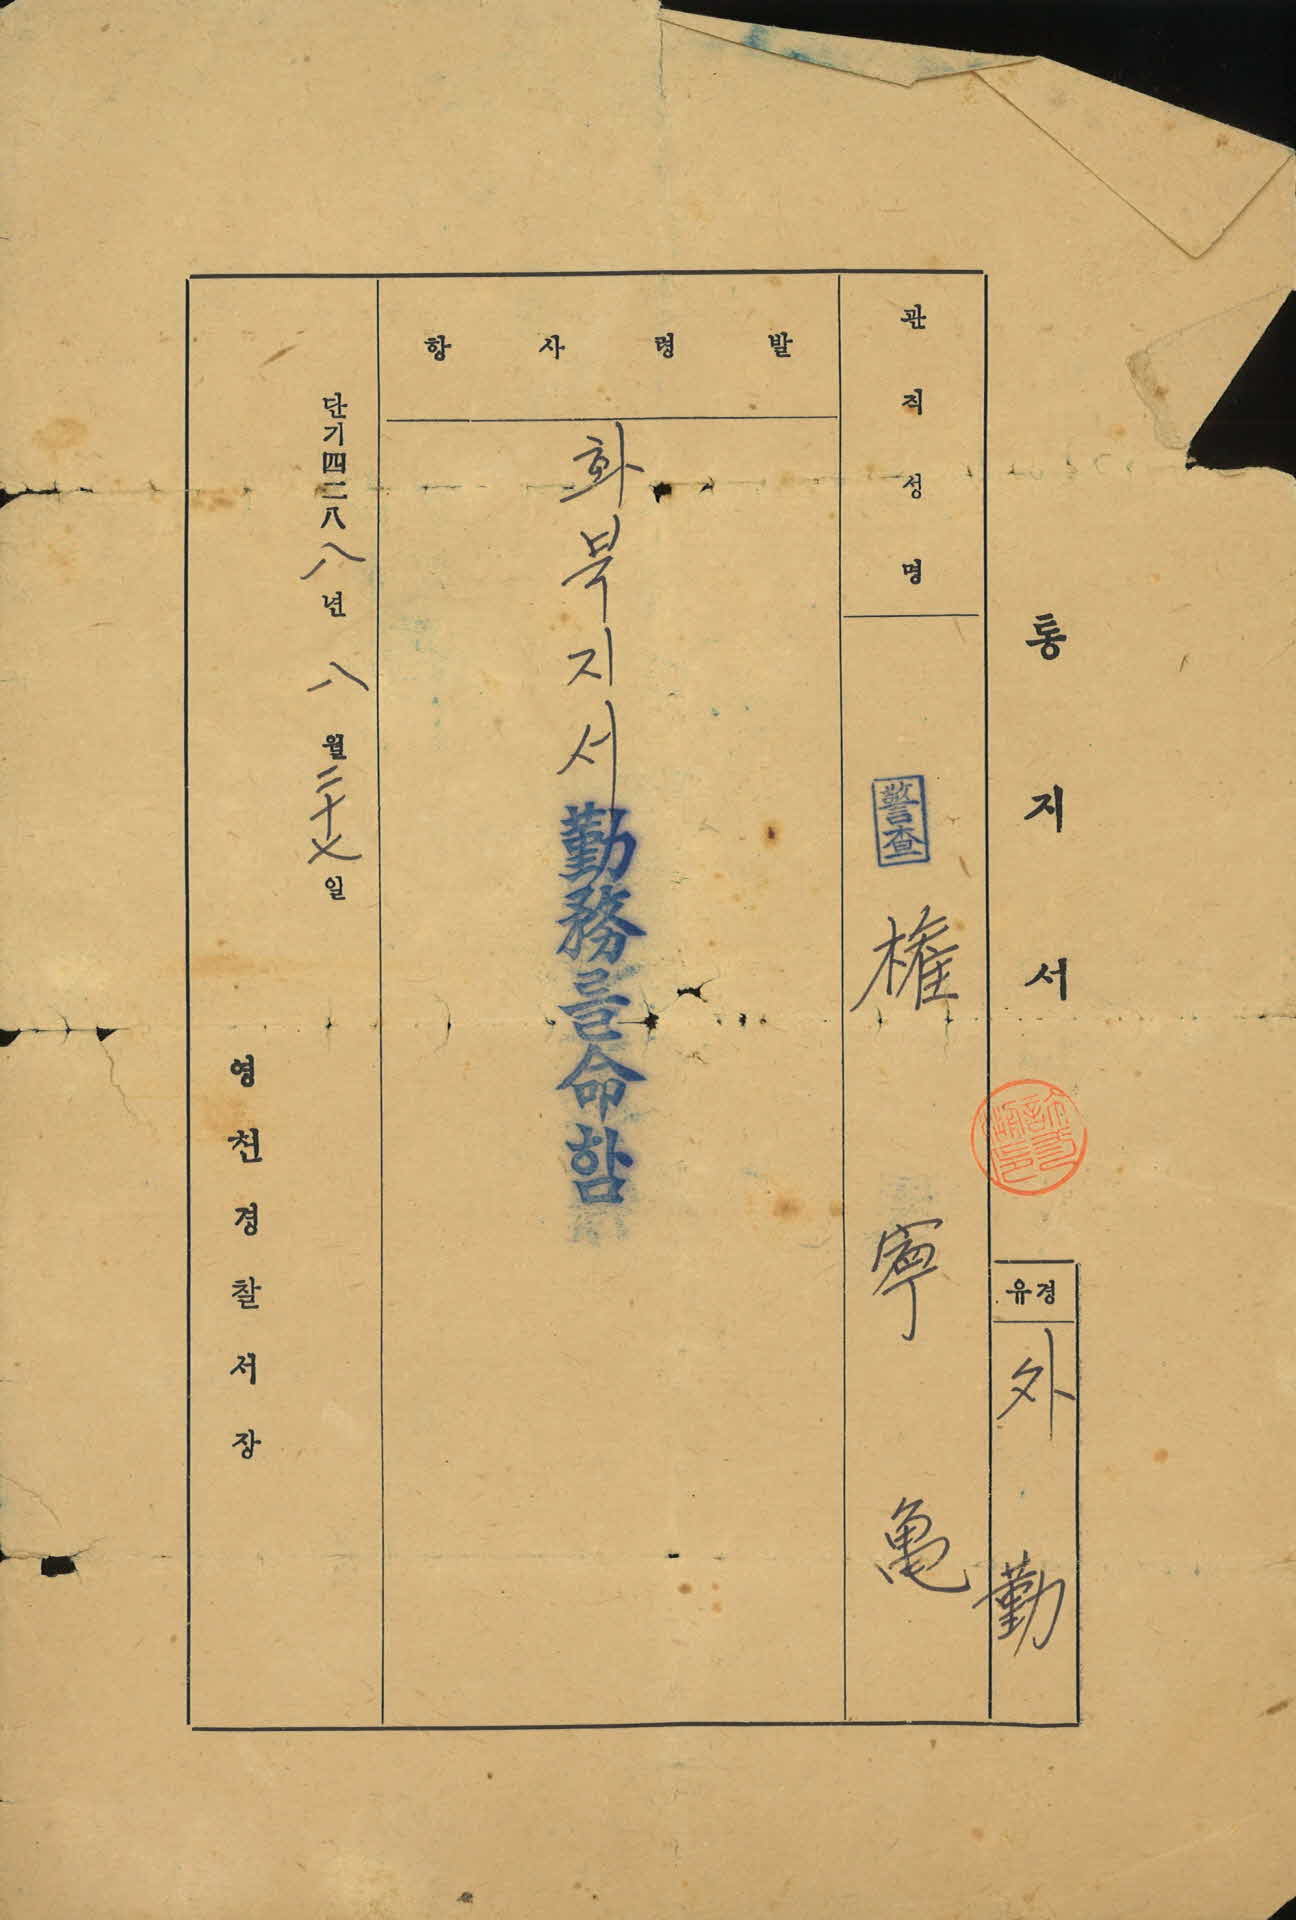 통지서
경유
外勤
관직성명
警査 權寧亀
발령사항
화북지서勤務를命함
단기四二八八年 八월二十七일
영천경찰서장